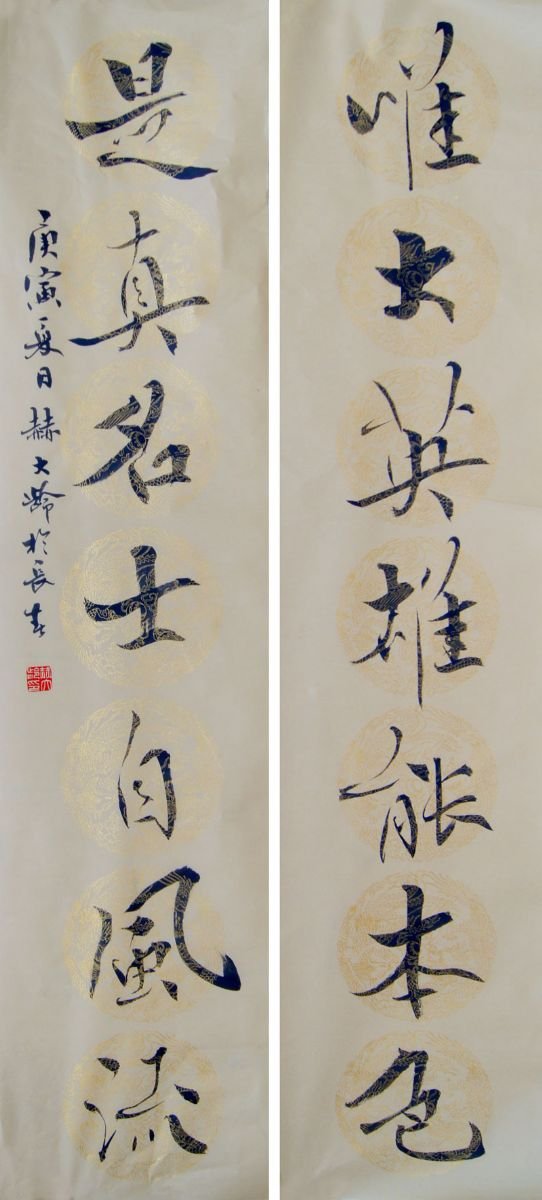 唯大英雄能本色
是真名士自風流
庚寅夏日赫大龄於長春